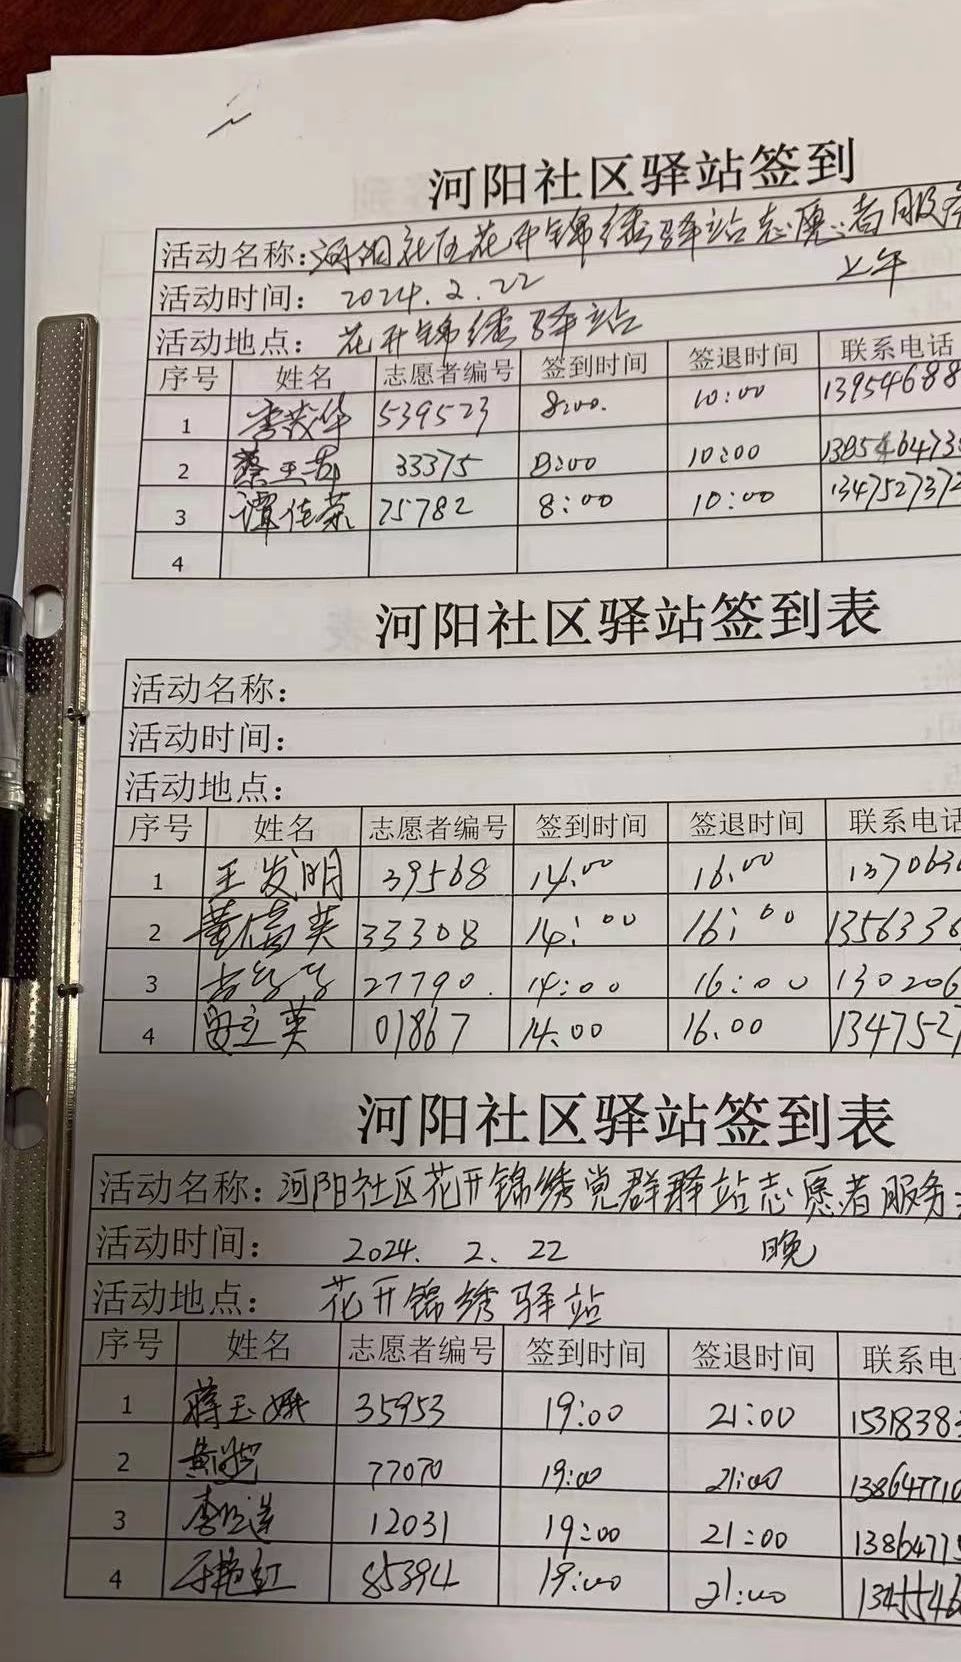 河阳社区驿站签到
活动名称:河阳社区花开锦绣驿站志愿者服务
活动时间: 2024.2.22 上午
活动地点: 花开锦绣驿站
序号 姓名 志愿者编号 签到时间 签退时间 联系电话
1 李茂华 539523 8:00. 10:00 13954688
2 蔡玉 33375 8:00 10:00 138546473
3 谭佳荣 75782 8:00 10:00 1347527372
4
河阳社区驿站签到表
活动名称:
活动时间:
活动地点:
序号 姓名 志愿者编号 签到时间 签退时间 联系电话
1 王发明 39568 14.00 16.00 137063
2 董信英 33308 14:00 16:00 1356336
3 27790. 14:00 16:00 130206
4 立英 01867 14.00 16.00 1347527
河阳社区驿站签到表
活动名称:河阳社区花开锦绣党群驿站志愿者服务
活动时间: 2024. 2. 22 晚
活动地点: 花开锦绣驿站
序号 姓名 志愿者编号 签到时间 签退时间 联系电
1 蒋玉娥 35953 19:00 21:00 1531838
2 黄 77070 19:00 21:00 138647710
3 李 12031 19:00 21:00 13864771
4 于艳红 85394 19:00 21:00 1345546